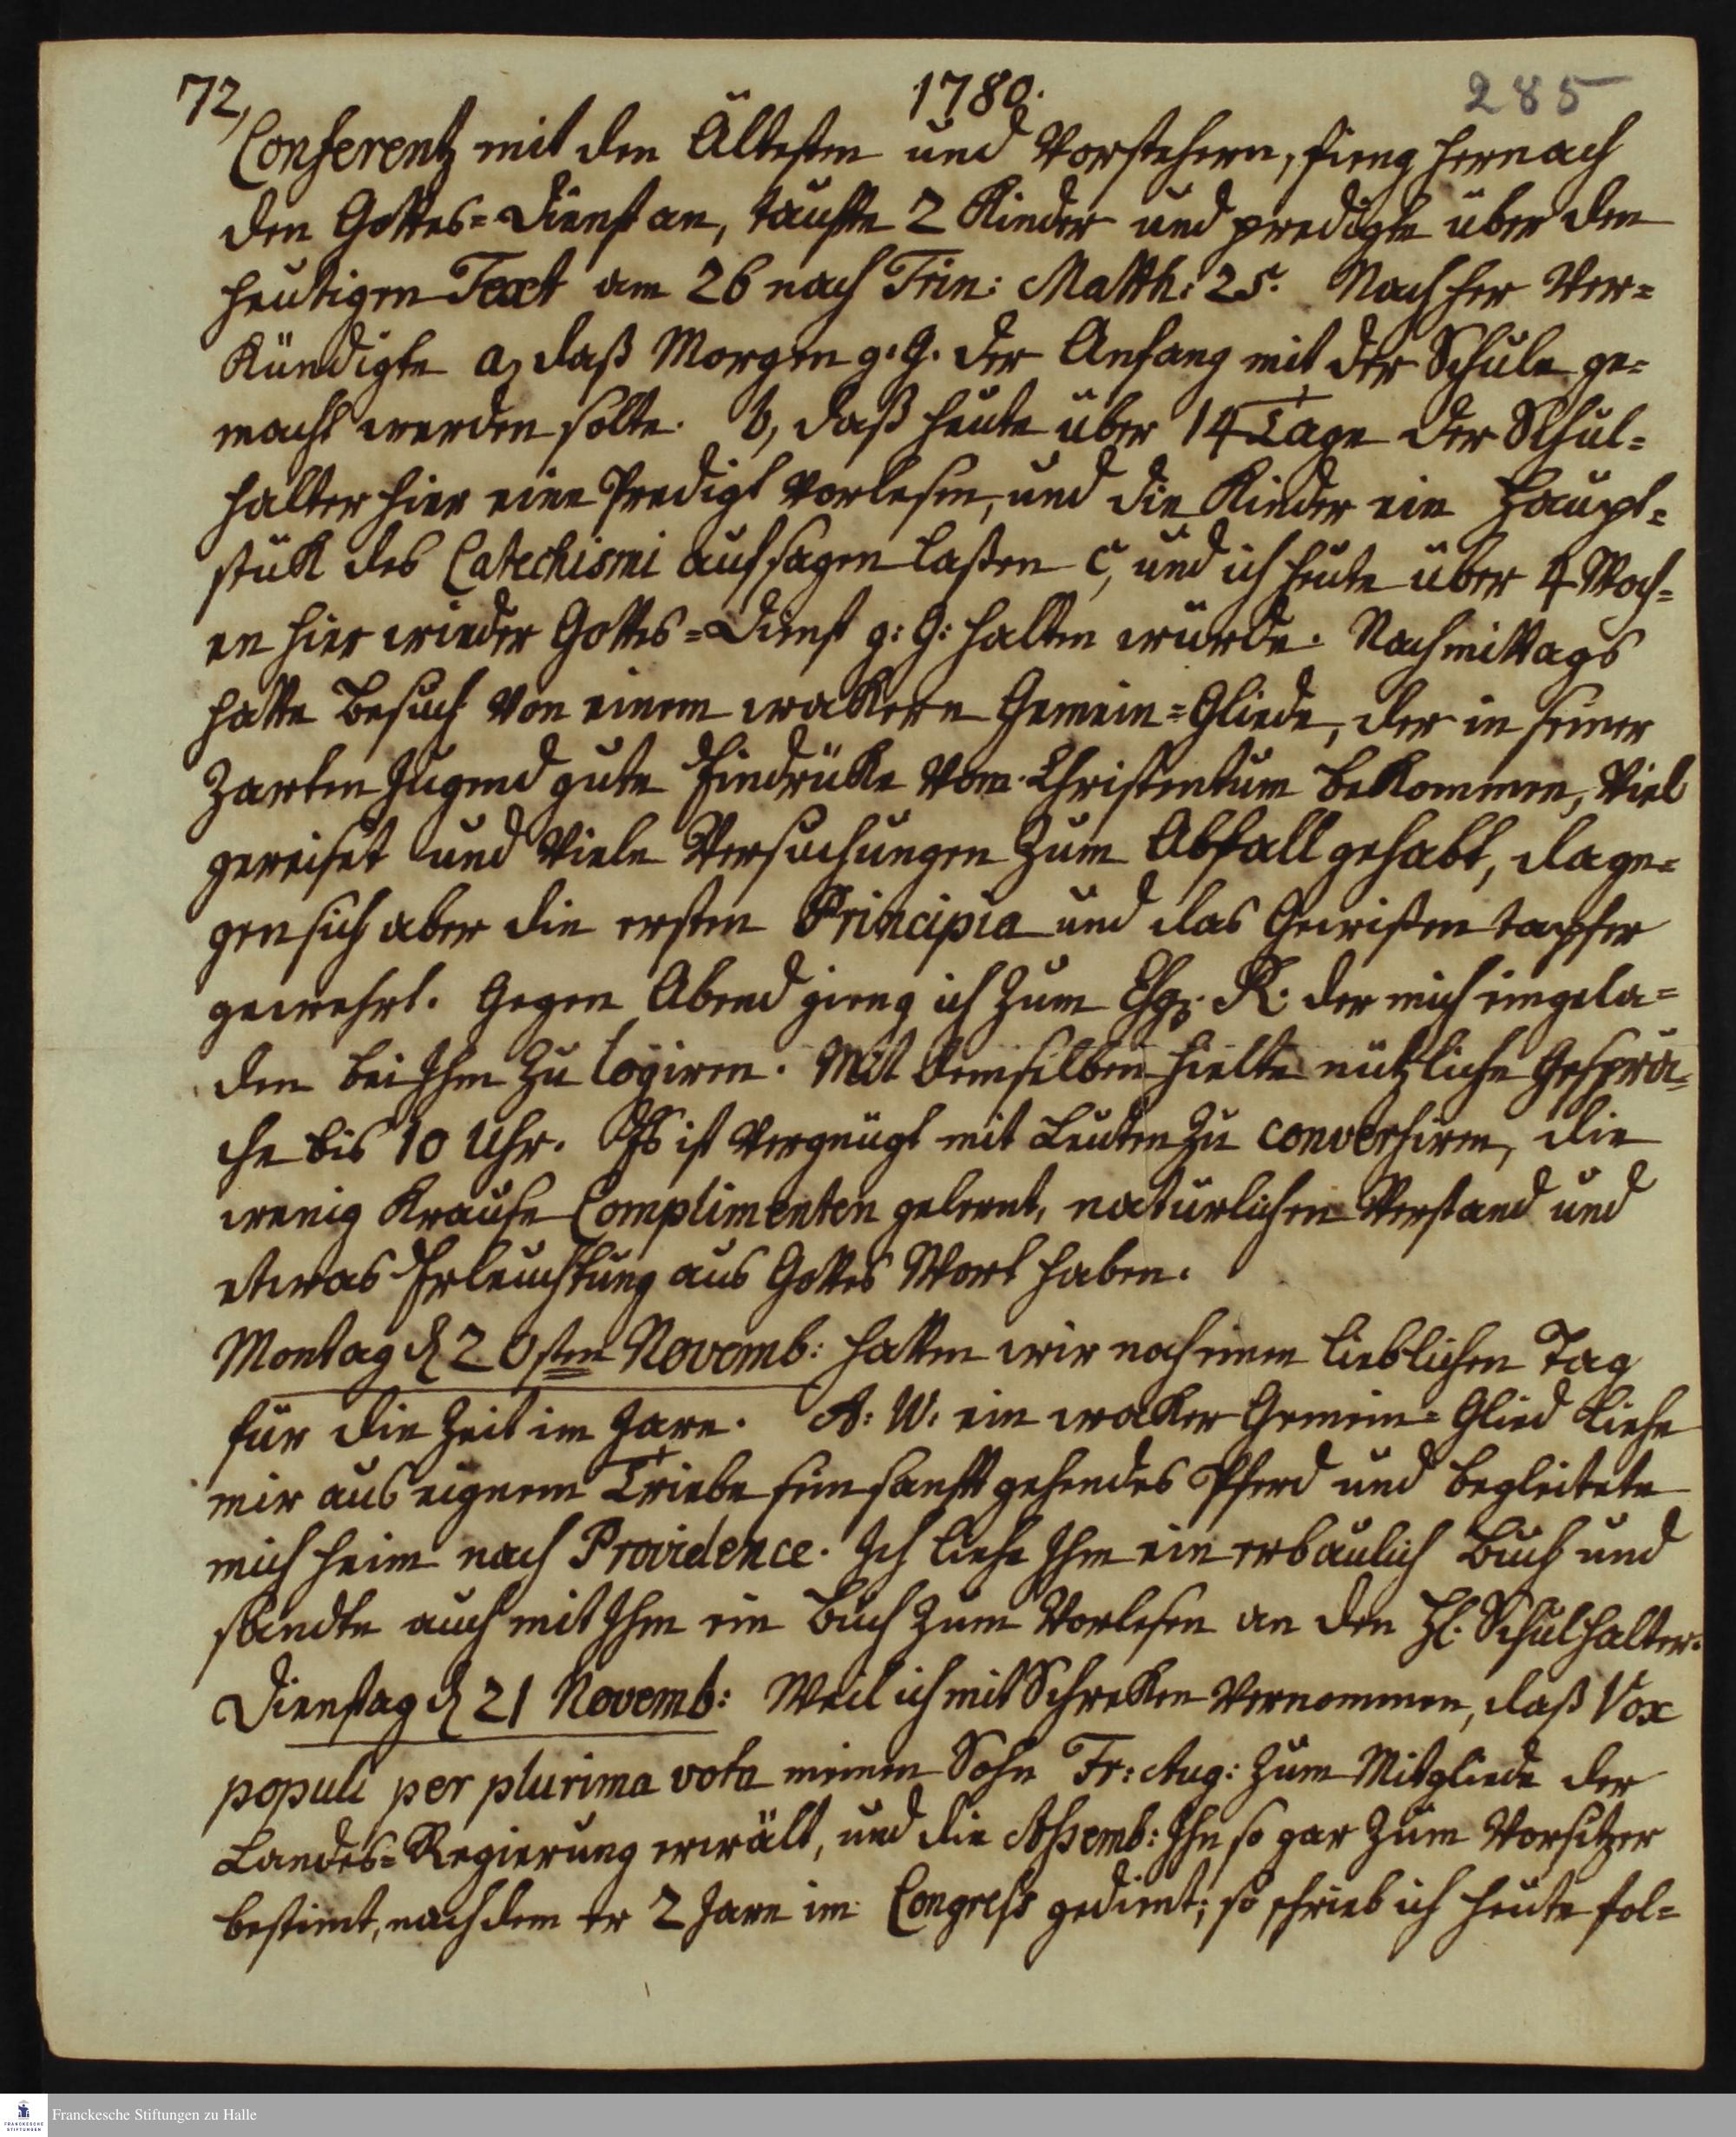 72, 1780. 285
Conferentz mit den Ältesten und Vorstehern, fieng hernach
den Gottes=Dienst an, taufte 2 Kinder und predigte über den
heutigen Text am 26 nach Trin: Matth: 25. Nachher Ver=
kündigte a, daß Morgen g. G. der Anfang mit der Schule ge=
macht werden solte. b, daß heute über 14 Tage der Schul=
halter hier eine Predigt vorlesen, und die Kinder ein Haupt=
stük des Catechismi aufsagen laßen c, und ich heute über 4 Woch=
en hier wieder Gottes=Dienst g: G: halten würde. Nachmittags
hatte Besuch von einem wakern Gemein=Gliede, der in seiner
zarten Jugend gute Eindrüke vom Christentum bekommen, viel
gereiset und viele Versuchungen zum Abfall gehabt, dage=
gen sich aber die ersten Principia und das Gewißen tapfer
gewehrt. Gegen Abend gieng ich zum Esq. R. der mich eingela=
den bei Ihm zu logiren. Mit demselben hielte nützliche Gesprä=
che bis 10 Uhr. Es ist vergnügt mit Leuten zu conversiren, die
wenig krause Complimenten gelernt, natürlichen Verstand und
etwas Erleuchtung aus Gottes Wort haben.
Montag d 20sten Novemb: hatten wir noch einen lieblichen Tag
für die Zeit im Jare. A: W: ein waker Gemein=Glied liehe
mir aus eignem Triebe sein sanft gehendes Pferd und begleitete
mich heim nach Providence. Ich liehe Ihm ein erbaulich Buch und
sandte auch mit Ihm ein Buch zum Vorlesen an den H. Schulhalter.
Dienstag d 21 Novemb: Weil ich mit Schreken vernommen, daß Vox
populi per plurima vota meinen Sohn Fr: Aug: zum Mitgliede der
Landes=Regierung erwält, und die Assemb: Ihn so gar zum Vorsitzer
bestimt, nachdem er 2 Jare im Congress gedient; so schrieb ich heute fol=
Franckesche Stiftungen zu Halle
FRANCKESCHE
STIFTUNGEN